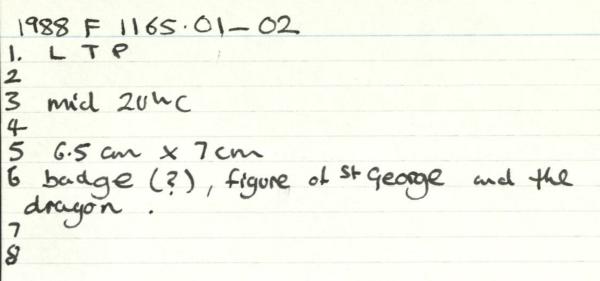 1988 F 1165.01-02
1. L T P
2
3 mid 20th C
4
5 6.5 cm x 7cm
6 badge (?), figure of St George and the
dragon.
7
8